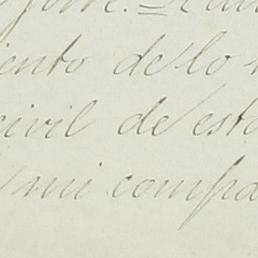 iento de lo
civil de esta
mi compa